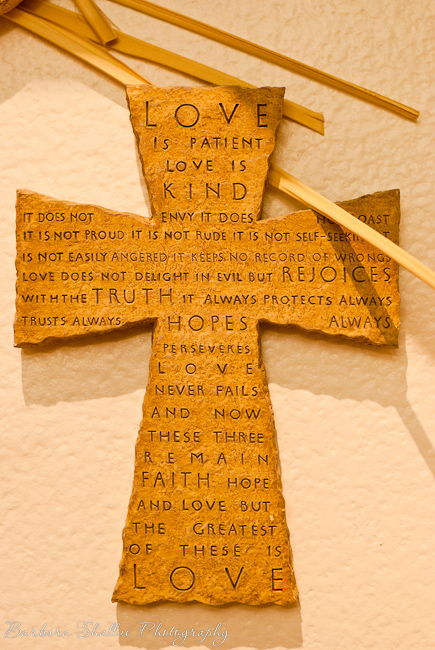 LOVE
IS PATIENT
LOVE IS
KIND
IT DOES NOT ENVY IT DOES
IT IS NOT PROUD IT IS NOT RUDE IT IS NOT
IS NOT EASILY ANGERED IT KEEPS NO RECORD OF WRONGS
LOVE DOES NOT DELIGHT IN EVIL BUT REJOICES
WITH THE TRUTH IT ALWAYS PROTECTS ALWAYS
TRUSTS ALWAYS HOPES ALWAYS
PERSEVERES
LOVE
NEVER FAILS
AND NOW
THESE THREE
REMAIN
FAITH HOPE
AND LOVE BUT
THE GREATEST
OF THESE IS
LOVE
Photography